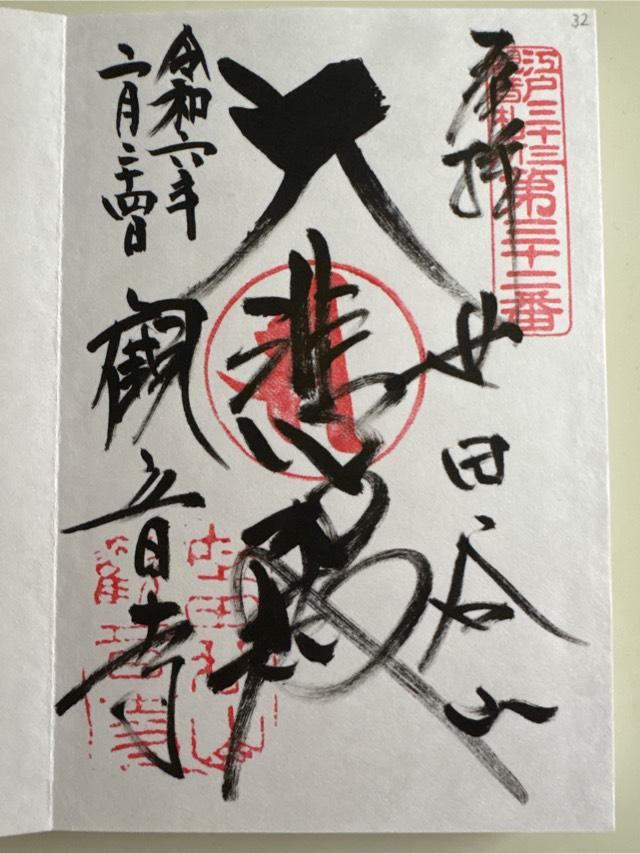 32
江戸三十三観音札所第三十二番
奉拝
世田谷山
大悲殿
令和六年
二月二十四日
観音寺